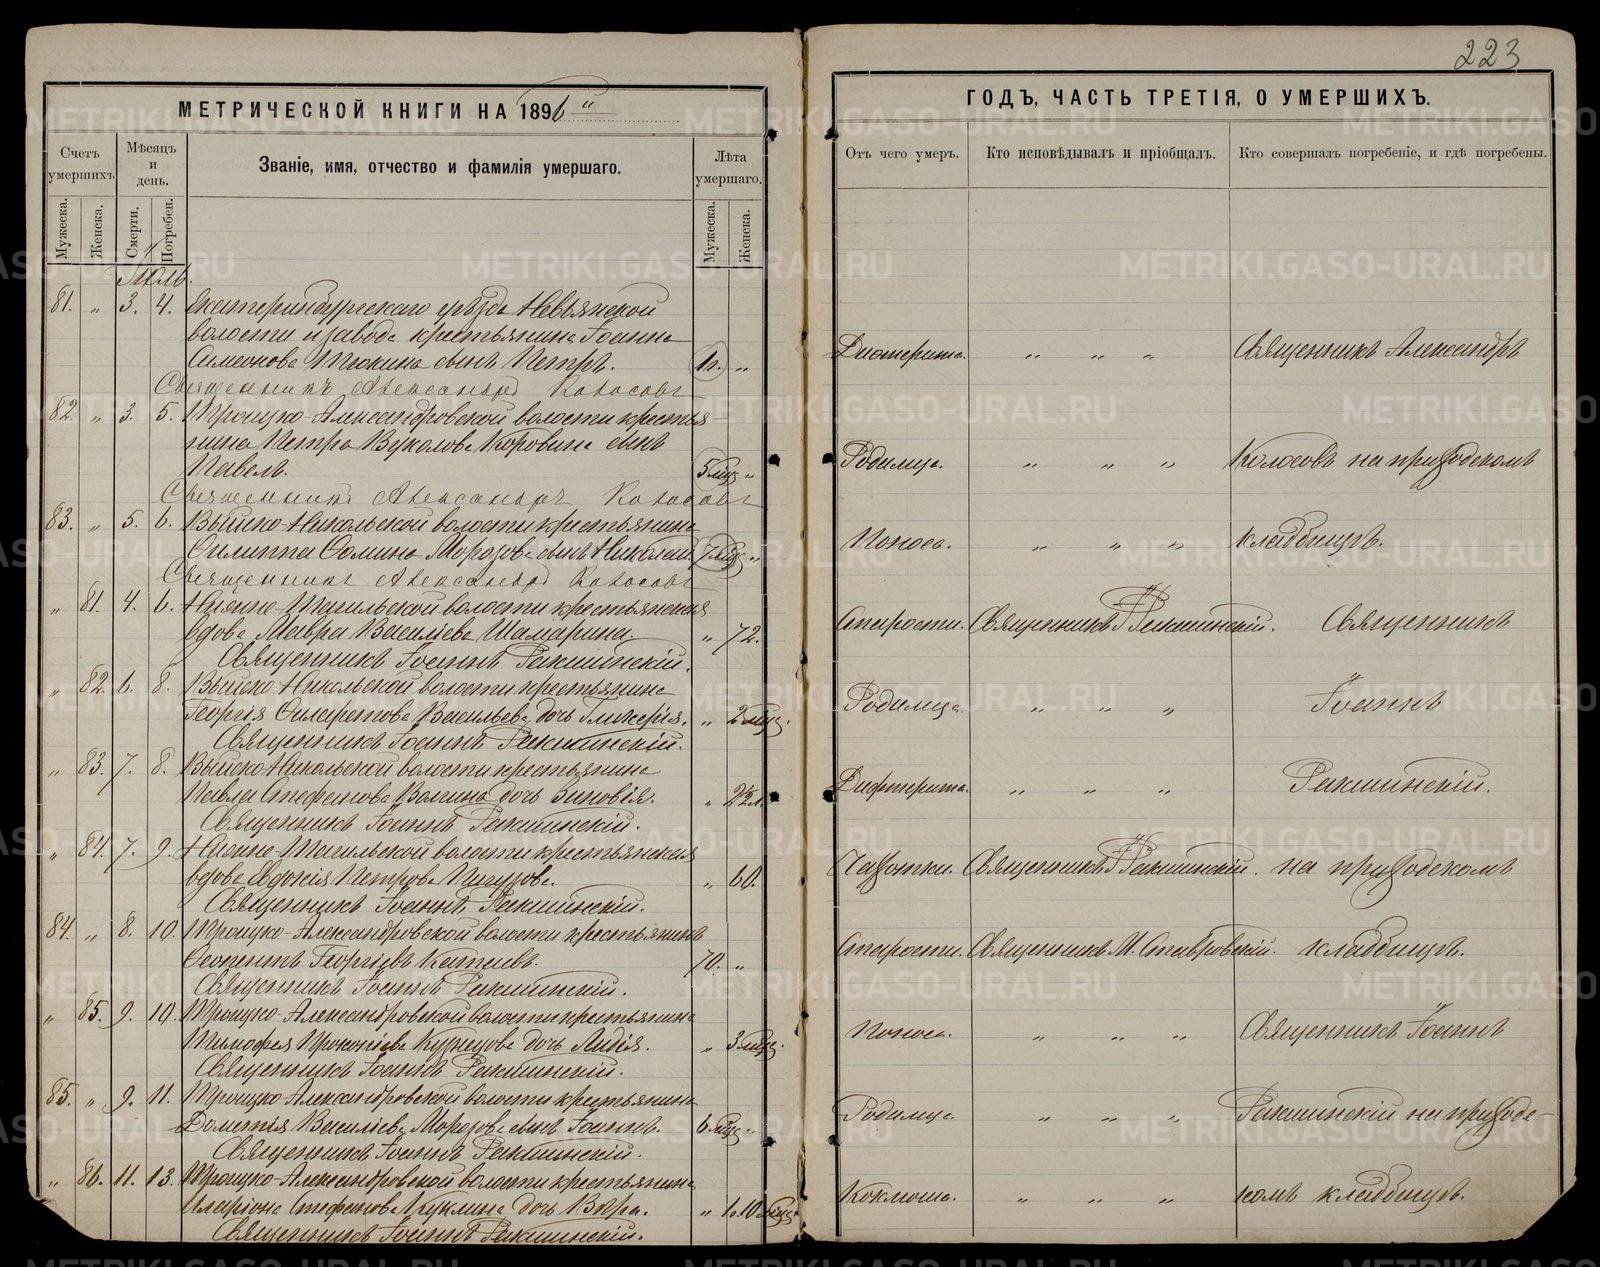 223
МЕТРИЧЕСКОЙ КНИГИ НА 1896
ГОДЪ, ЧАСТЬ ТРЕТІЯ, О УМЕРШИХЪ.
Счетъ умершихъ.
Мѣсяцъ и день.
Званіе, имя, отчество и фамилія умершаго.
Лѣта умершаго.
Мужеска.
Женска.
Смерти.
Погребен.
Мужеска.
Женска.
Отъ чего умеръ.
Кто исповѣдывалъ и пріобщалъ.
Кто совершалъ погребеніе, и гдѣ погребены.
81. " 3. 4. Екатеринбургскаго уѣзда Невьянской
волости и завода крестьянина Іоанна
Симеонова Тюкина сынъ Петръ. 1 г. "
Священникъ Александръ Колосовъ
82. " 3. 5. Троицко-Александровской волости крестья
нина Петра Вуколова Коровина сынъ
Павелъ. 5 мѣс. "
Священникъ Александръ Колосовъ
83. " 5. 6. Выйско-Никольской волости крестьянина
Филиппа Фомина Морозова сынъ Николай. 7 мѣс. "
Священникъ Александръ Колосовъ
" 81. 4. 6. Нижне-Тагильской волости крестьянская
вдова Мавра Васильева Шамарина. " 72.
Священникъ Іоаннъ Ракшинскій.
" 82. 6. 8. Выйско-Никольской волости крестьянина
Георгія Филаретова Васильева дочь Гликерія. " 2 мѣс.
Священникъ Іоаннъ Ракшинскій.
" 83. 7. 8. Выйско-Никольской волости крестьянина
Павла Стефанова Волгина дочь Зиновія. " 2½ л.
Священникъ Іоаннъ Ракшинскій.
" 84. 7. 9. Нижне-Тагильской волости крестьянская
вдова Евдокія Петрова " 60.
Священникъ Іоаннъ Ракшинскій.
84. " 8. 10. Троицко-Александровской волости крестьянинъ
Феопентъ Георгіевъ Катаевъ. 70. "
Священникъ Іоаннъ Ракшинскій.
" 85. 9. 10. Троицко-Александровской волости крестьянина
Тимофея Прокопіева Кузнецова дочь Лидія. " 3 мѣс.
Священникъ Іоаннъ Ракшинскій.
85. " 9. 11. Троицко-Александровской волости крестьянина
Дометія Васильева Морозова сынъ Іоаннъ. 6 мѣс. "
Священникъ Іоаннъ Ракшинскій.
" 86. 11. 13. Троицко-Александровской волости крестьянина
Иларіона Стефанова Куклина дочь Вѣра. " 1 г. 10 мѣс.
Священникъ Іоаннъ Ракшинскій.
Дифтерита. " " " Священникъ Александръ
Родимца. " " " Колосовъ на приходскомъ
Поноса. " " " кладбищѣ.
Старости. Священникъ І. Ракшинскій. Священникъ
Родимца " " " Іоаннъ
Дифтерита. " " " Ракшинскій.
Чахотки. Священникъ І. Ракшинскій. на приходскомъ
Старости. Священникъ М. Ставровскій. кладбищѣ.
Поноса. " " " Священникъ Іоаннъ
Родимца " " " Ракшинскій на приходс-
Коклюша. " " " комъ кладбищѣ.
METRIKI.GASO-URAL.RU